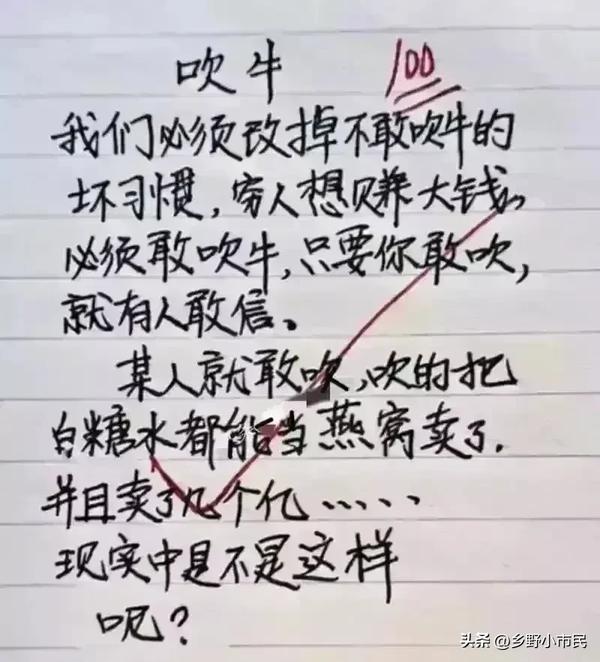 吹牛
100
我们必须改掉不敢吹牛的
坏习惯,穷人想赚大钱,
必须敢吹牛,只要你敢吹,
就有人敢信。
某人就敢吹,吹的把
白糖水都能当燕窝卖了.
并且卖了几个亿……
现实中是不是这样
呢?
头条@乡野小市民